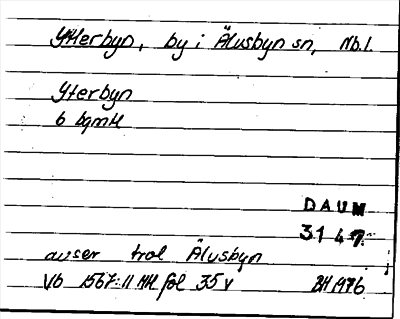 Ytterbyn, by i Älvsbyn sn, Nb.l.
Yterbyn
6 bqmtl
DAUM
3147
avser trol Älvsbyn
Vb 1567:11 HH fol 35 v BH 1976